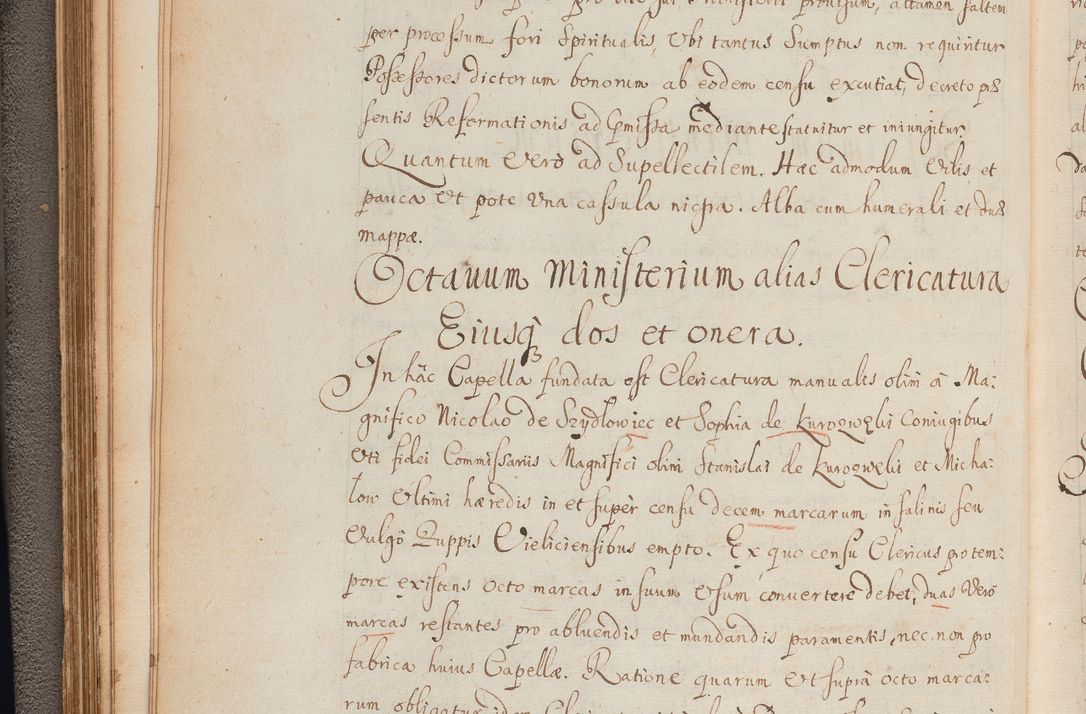 pro vite sui ministerii provisum, attamen saltem
per processum fori Spiritualis, Vbi tantus Sumptus non requiritur
Possessores dictorum bonorum ab eodem censu excutiat, decreto præ
sentis Reformationis ad præmissa mediante statuitur et iniungitur.
Quantum Vero ad Supellectilem. Hæc admodum Vilis et
pauca Vt pote Vna cassula nigra. Alba cum humerali et duæ
mappæ.
Octauum Ministerium alias Clericatura
Eiusq3 dos et onera.
In hâc Capella fundata est Clericatura manualis olim à Ma:
gnifico Nicolao de Szydlowiec et Sophia de Kurozwęki Coniugibus
Vti fidei Commissariis Magnifici olim Stanislai de Kurozweki et Micha:
low Vltimi hæredis in et super censu decem marcarum in salinis seu
Vulgò Zuppis Vieliciensibus empto. Ex quo censu Clericus pro tem:
pore existens octo marcas in suum Vsum convertere debet, duas Verò
marcas restantes pro abluendis et mundandis paramentis, nec non pro
fabrica huius Capellæ. Ratione quarum Vt suprà octo marca:
rum obligatur idem